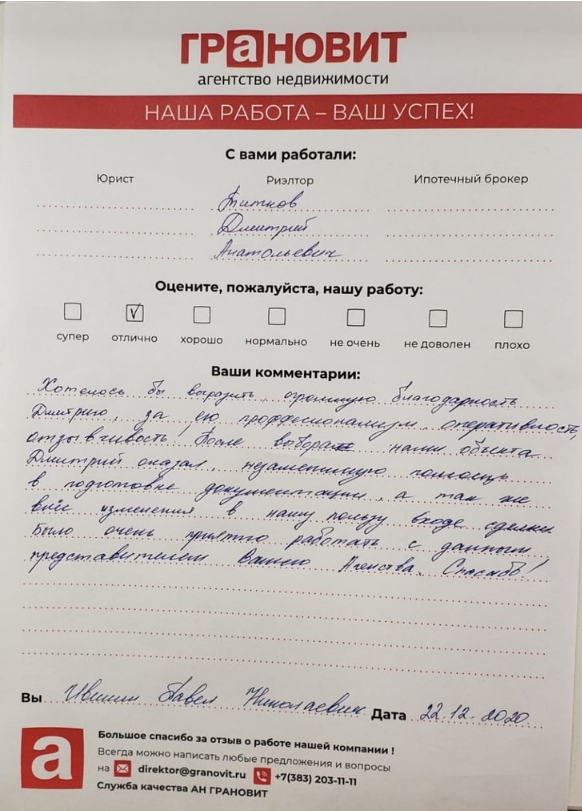 ГРаНОВИТ
агентство недвижимости
НАША РАБОТА – ВАШ УСПЕХ!
С вами работали:
Юрист Риэлтор Ипотечный брокер
Титков
Дмитрий
Анатольевич
Оцените, пожалуйста, нашу работу:
супер отлично хорошо нормально не очень не доволен плохо
Ваши комментарии:
Хотелось бы выразить огромную благодарность
Дмитрию, за его проффесионализм, оперативность,
отзывчивость! После выбора нами объекта
Дмитрий оказал незаменимую помощь
в подготовке документации, а так же
внёс изменения в нашу пользу входе сделки
Было очень приятно работать с данным
представителем Вашего Агенства. Спасибо!
Вы Павел Николаевич Дата 22.12.2020
а
Большое спасибо за отзыв о работе нашей компании !
Всегда можно написать любые предложения и вопросы
на direktor@granovit.ru +7(383) 203-11-11
Служба качества АН ГРАНОВИТ